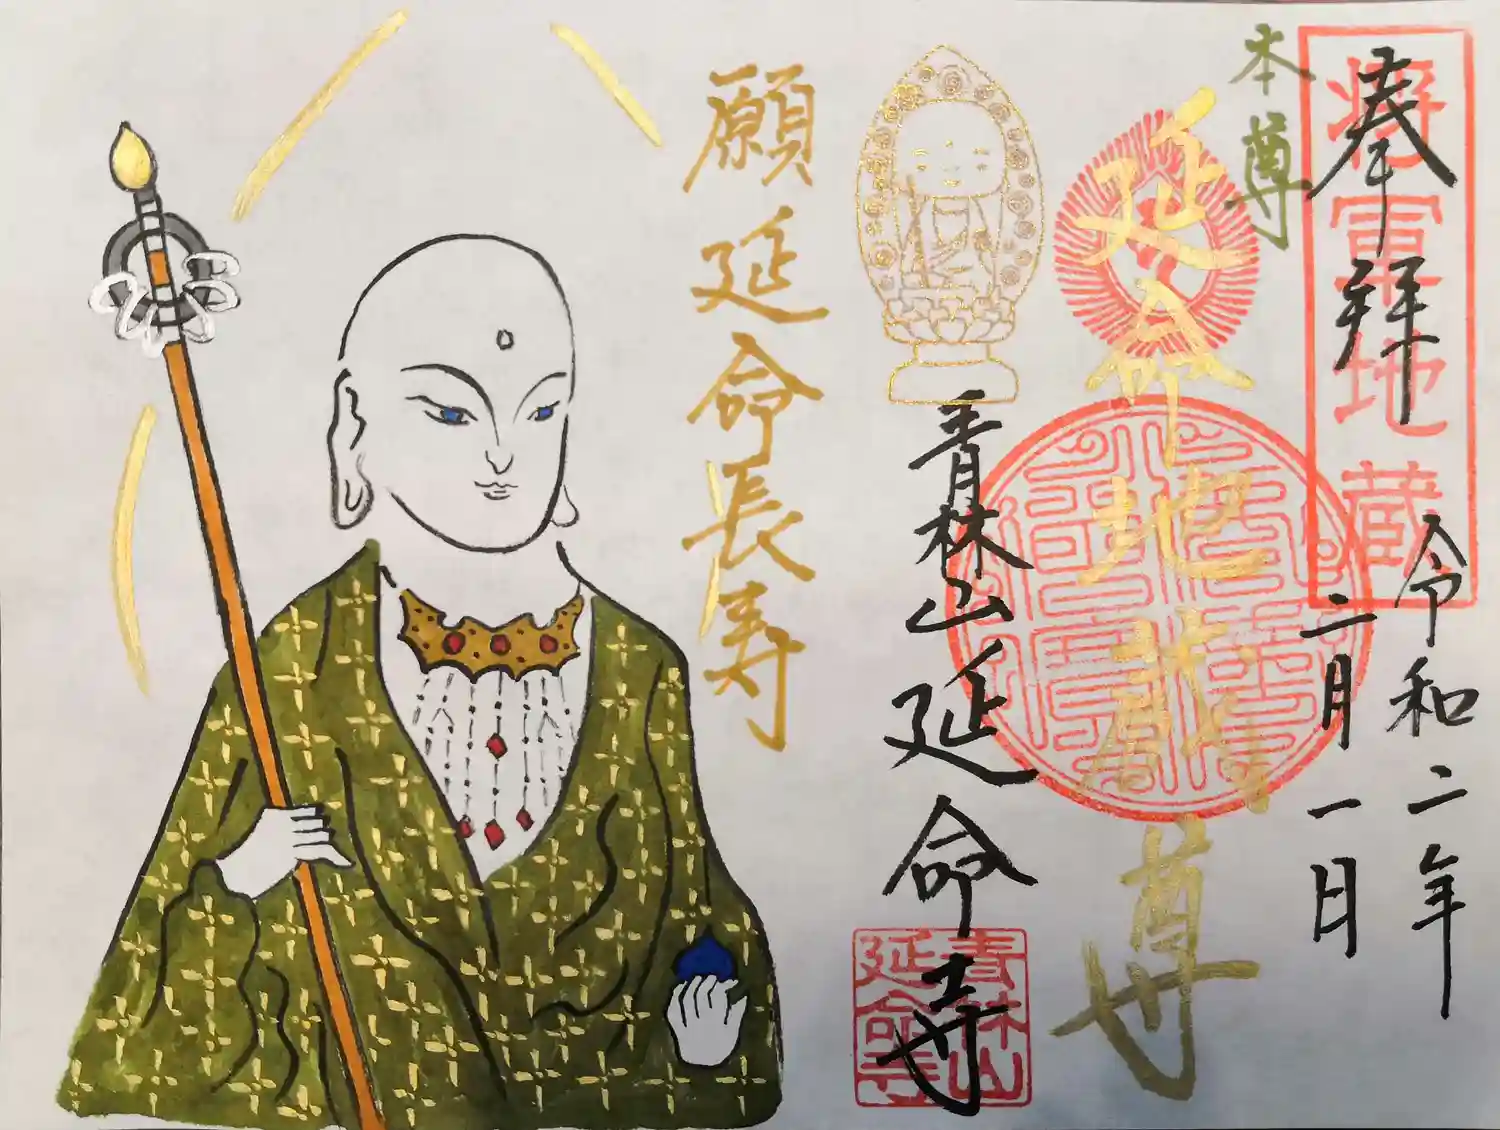 奉拝
将軍地蔵
令和二年
二月一日
本尊
延命地蔵尊
青林山延命寺
青林山
延命寺
願延命長寿